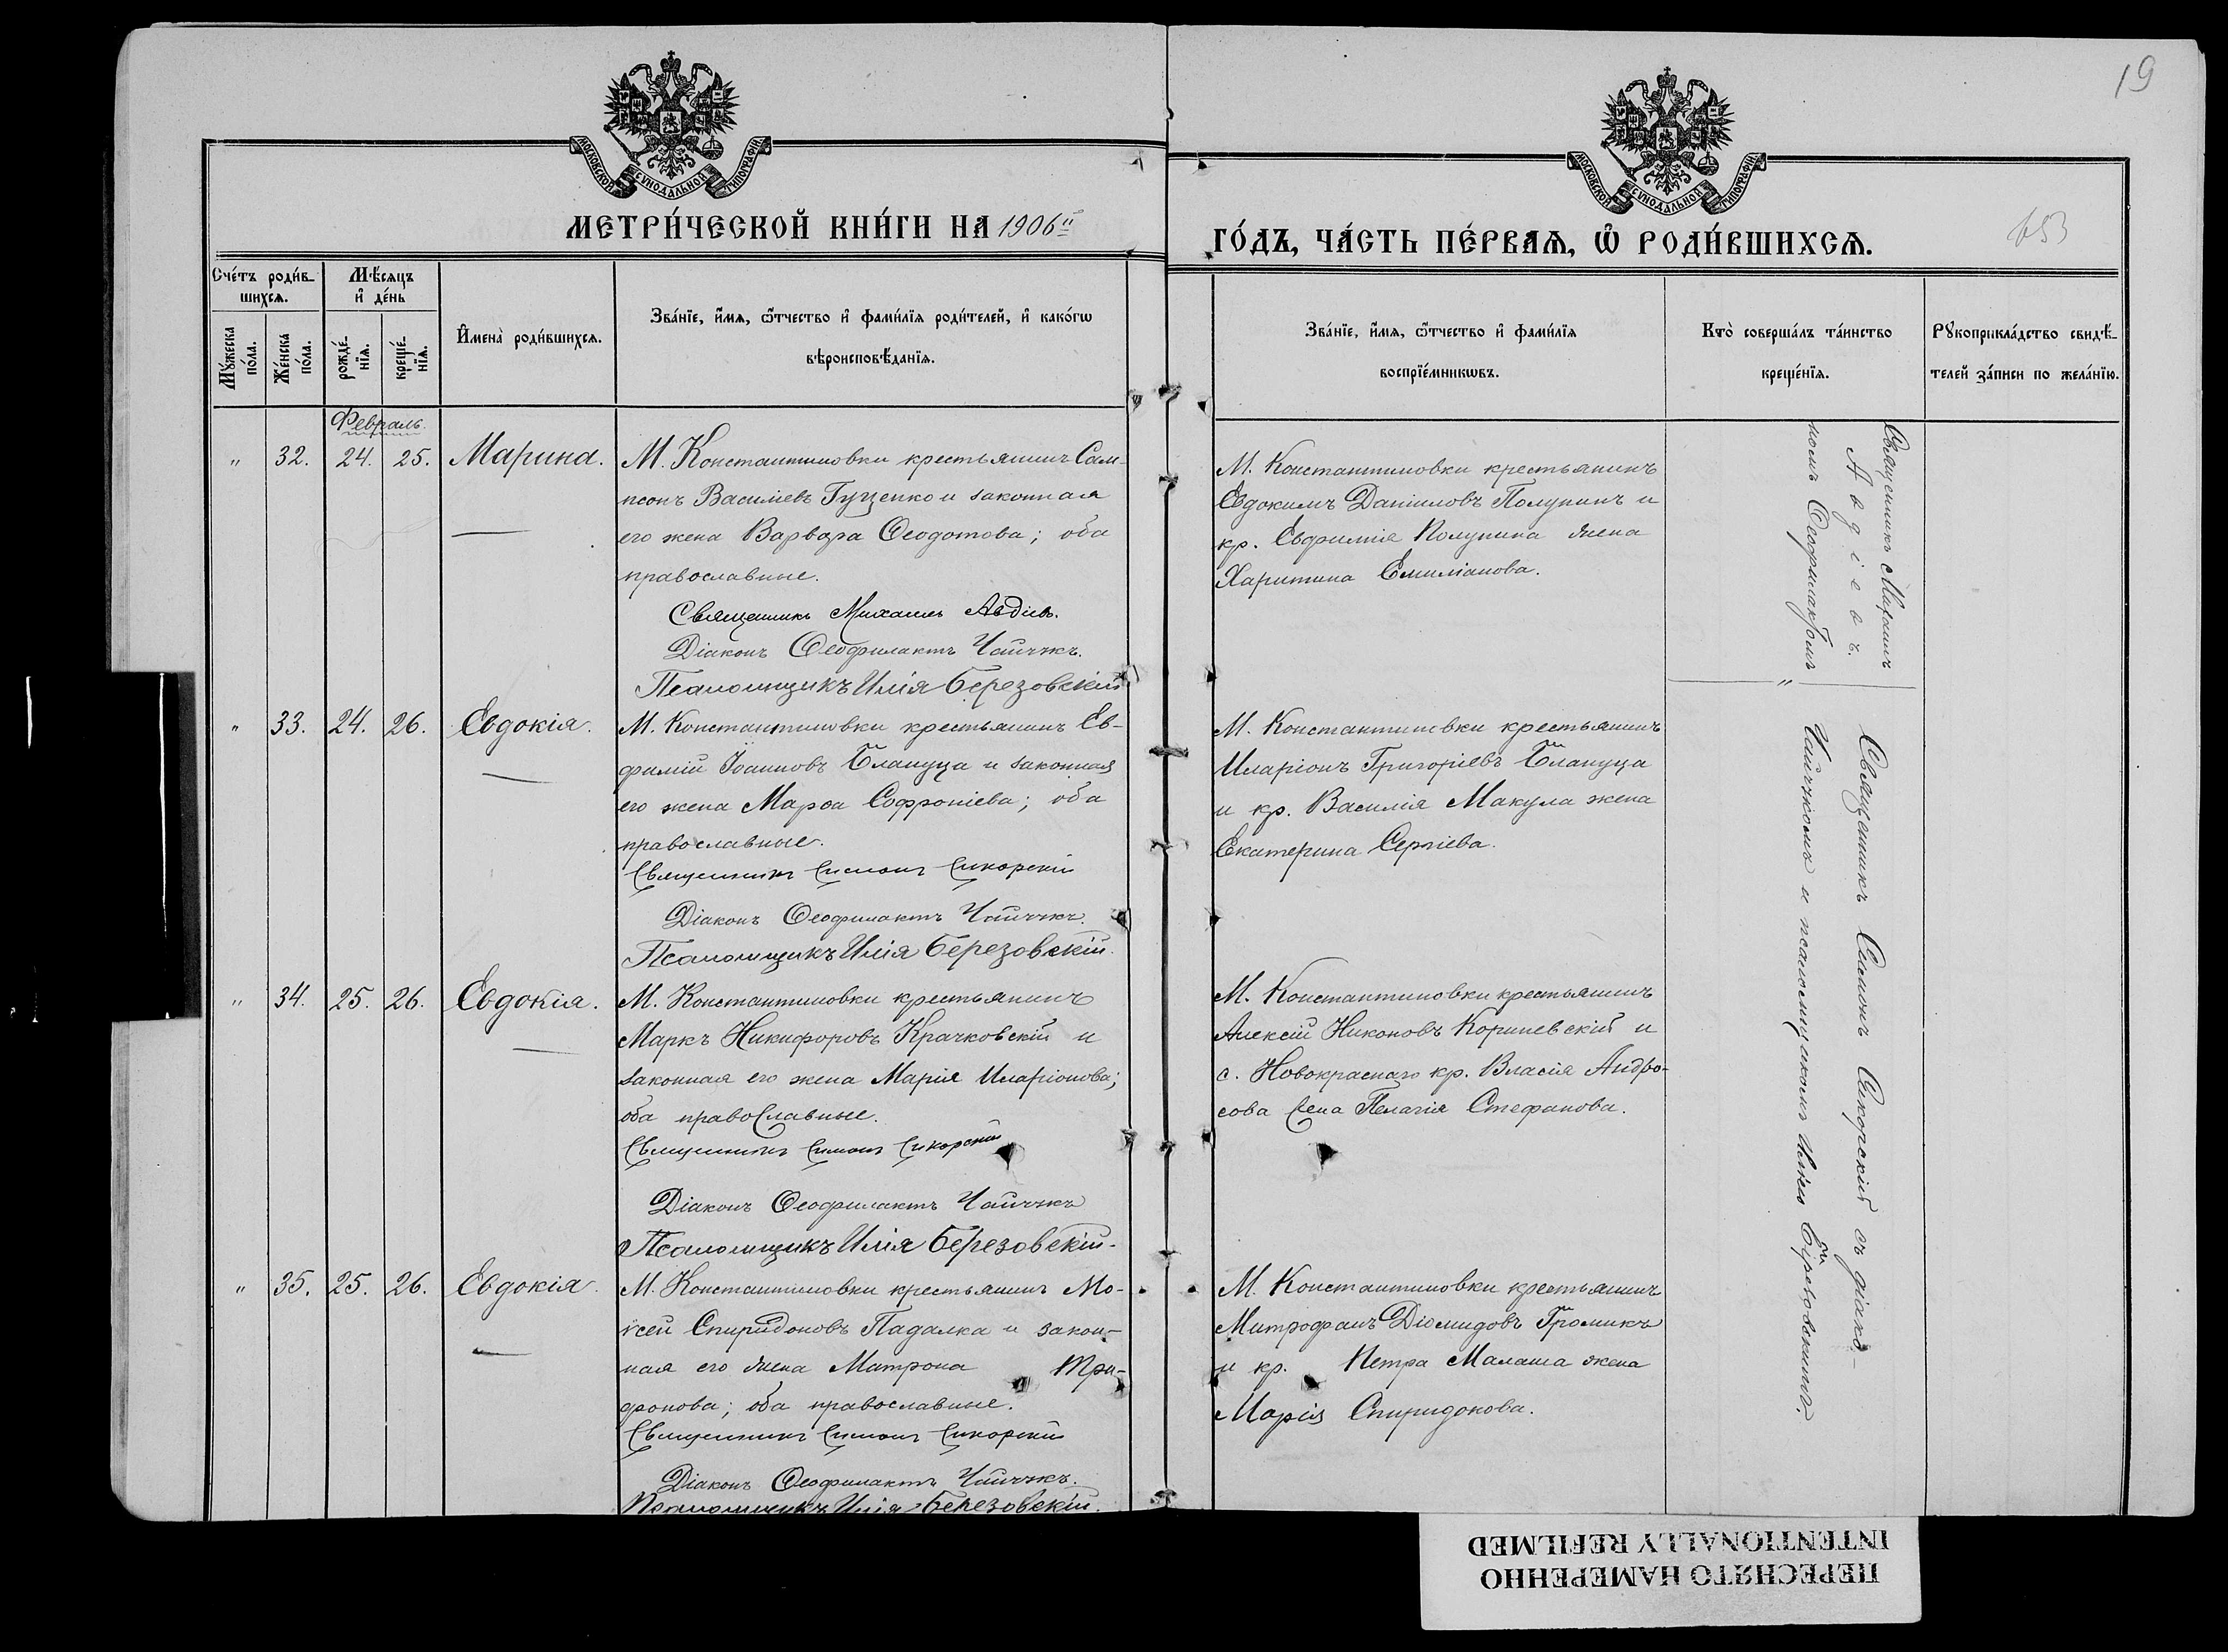 19
МОСКОВСКОЙ СѴНОДАЛЬНОЙ ТИПОГРАФІИ
МОСКОВСКОЙ СѴНОДАЛЬНОЙ ТИПОГРАФІИ
МЕТРИ́ЧЕСКОЙ КНИ́ГИ НА 1906й
ГО́ДЪ, ЧА́СТЬ ПЕ́РВАЯ, Ѡ РОДИ́ВШИХСЯ.
653
Сче́тъ роди́в-
шихсѧ.
Мѣ́сѧцъ
и҆ де́нь
Мꙋ́жеска
по́ла.
Же́нска
по́ла.
рожде́-
нїѧ.
креще́-
нїѧ.
И҆мена̀ роди́вшихсѧ.
Зва́нїе, и҆́мѧ, ѻ҆́тчество и҆ фами́лїѧ роди́телей, и҆ како́гѡ
вѣроисповѣ́данїѧ.
Зва́нїе, и҆́мѧ, ѻ҆́тчество и҆ фами́лїѧ
воспрїе́мникѡвъ.
Кто̀ соверша́лъ та́инство
креще́нїѧ.
Рꙋкоприкла́дство свидѣ́-
телей за́писи по жела́нїю.
Февраль.
" 32. 24. 25. Марина.
М. Константиновки крестьянинъ Сам-
псонъ Василіевъ Гуценко и законная
его жена Варвара Ѳеодотова; оба
православные.
Священникъ Михаилъ Авдіевъ.
Діаконъ Ѳеофилактъ Чайчукъ.
Псаломщикъ Илія Березовскій
М. Константиновки крестьянинъ
Евдокимъ Даніиловъ Полунинъ и
кр. Евфимія Полунина жена
Харитина Емиліанова.
Священникъ Михаилъ
Авдіевъ.
номъ Ѳеофилактомъ
" 33. 24. 26. Евдокія.
М. Константиновки крестьянинъ Ев-
фимій Іоанновъ Блануца и законная
его жена Марѳа Софроніева; оба
православные.
Священникъ Симонъ Сикорскій
Діаконъ Ѳеофилактъ Чайчукъ.
Псаломщикъ Илія Березовскій.
М. Константиновки крестьянинъ
Иларіонъ Григоріевъ Блануца
и кр. Василія Макула жена
Екатерина Сергіева.
Священникъ Симонъ Сикорскій съ діако-
Чайчукомъ и псаломщикомъ Иліею Березовскимъ.
" 34. 25. 26. Евдокія.
М. Константиновки крестьянинъ
Маркъ Никифоровъ Крачковскій и
законная его жена Марія Иларіонова;
оба православные.
Священникъ Симонъ Сикорскій
Діаконъ Ѳеофилактъ Чайчукъ
Псаломщикъ Илія Березовскій.
М. Константиновки крестьянинъ
Алексій Никоновъ Кориневскій и
с. Новокраснаго кр. Власія Андро-
сова жена Пелагія Стефанова.
" 35. 25. 26. Евдокія.
М. Константиновки крестьянинъ Мо-
ѵсей Спиридоновъ Падалка и закон-
ная его жена Матрона Три-
фонова; оба православные.
Священникъ Симонъ Сикорскій
Діаконъ Ѳеофилактъ Чайчукъ.
Псаломщикъ Илія Березовскій.
М. Константиновки крестьянинъ
Митрофанъ Діомидовъ Громикъ
и кр. Петра Малаша жена
Марія Спиридонова.
ПЕРЕСНЯТО НАМЕРЕННО
INTENTIONALLY REFILMED